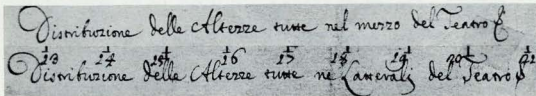 Distribuzione delle Altezze tutte nel mezzo del Teatro
1/13 1/14 1/15 1/16 1/17 1/18 1/19 1/20 1/21
Distribuzione delle Altezze tutte ne Latterali del Teatro